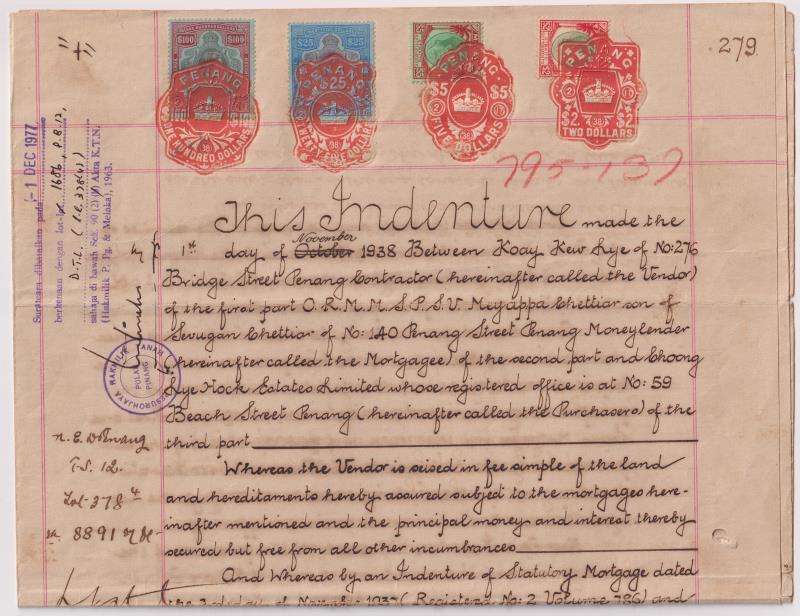 279
"+"
$100 $100
$25 $25
PENANG
ONE HUNDRED DOLLARS
PENANG
$25
TWENTY FIVE DOLLARS
PENANG
$5 $5
FIVE DOLLARS
PENANG
$2 $2
TWO DOLLARS
795-137
This Indenture made the
November
1st day of October 1938 Between Koay Kew Jye of No: 276
Bridge Street Penang Contractor (hereinafter called the Vendor)
of the first part O. R. M. M. S. P. S. V. Meyappa Chettiar son of
Sevugan Chettiar of No: 140 Penang Street Penang Moneylender
(hereinafter called the Mortgagee) of the second part and Choong
Lye Hock Estates Limited whose registered office is at No: 59
Beach Street Penang (hereinafter called the Purchasers) of the
third part
Whereas the Vendor is seised in fee simple of the land
and hereditaments hereby assured subject to the mortgages here-
inafter mentioned and the principal money and interest thereby
secured but free from all other incumbrances
And Whereas by an Indenture of Statutory Mortgage dated
the 3rd day of November 1937 (Registered No: 2 Volume 786) and
Suratcara dibatalkan pada -1 DEC 1977
berkenaan dengan lot-lot 1686, P.B. 12,
D.T.L. (L.C. 378(4))
sahaja di bawah Sek. 90 (2) Akta K.T.N.
(Hakmilik P. Pg. & Melaka), 1963.
PESUROHJAYA HAKMILIK TANAH
PULAU
PINANG
N. E. D. Penang
T.S. 12.
Lot 378 4
8891